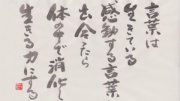 言葉は
生きている
感動する言葉に
出合ったら
体の中で消化し
生きる力にする